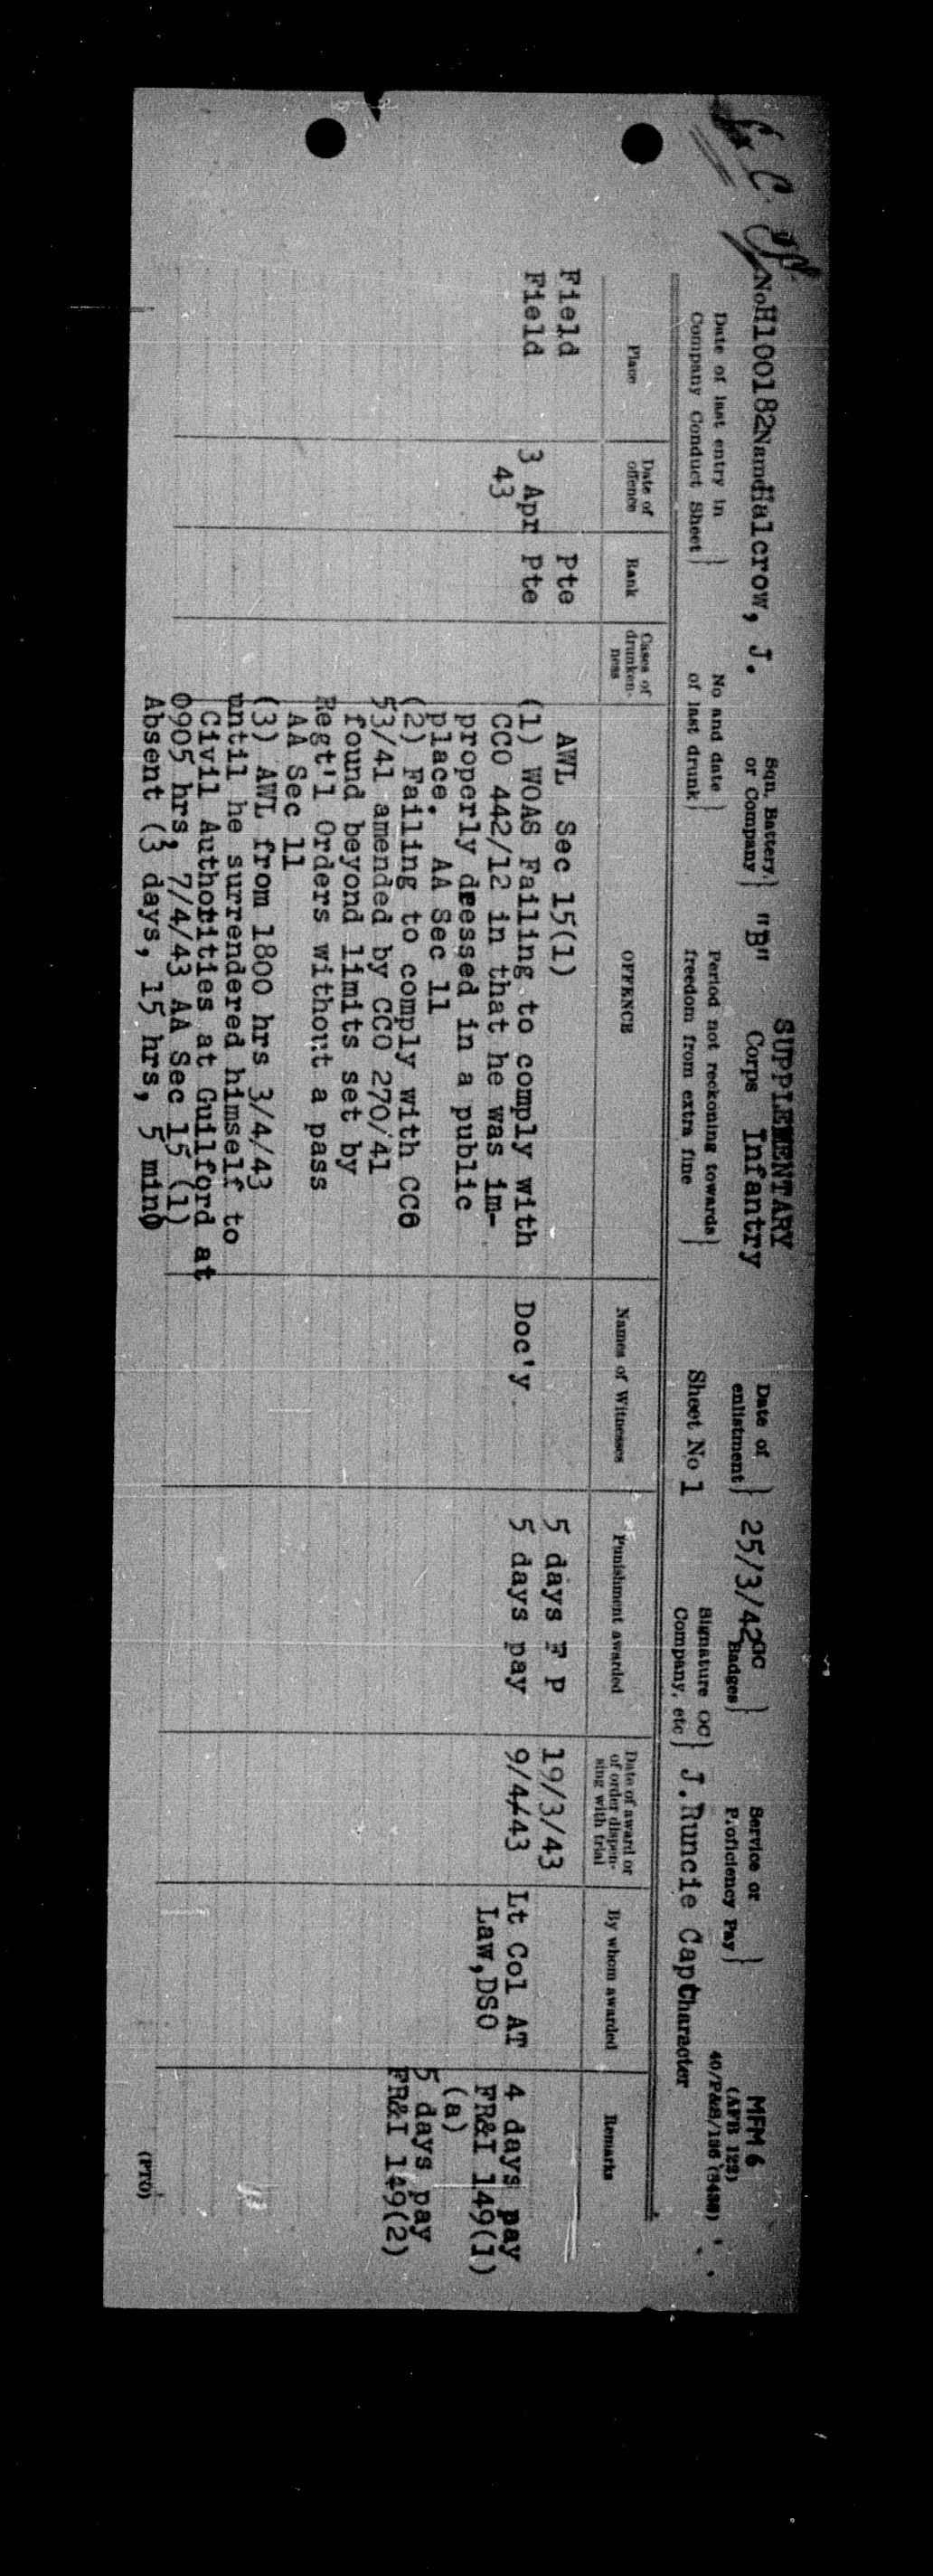 SUPPLEMENTARY
MFM 6
(AFB 122)
40/P&S/186 (8488)
No H100182 Name Halcrow, J.
Sqn, Battery, or Company } "B"
Corps Infantry
Date of enlistment } 25/3/42
GC Badges }
Service or Proficiency Pay }
Date of last entry in Company Conduct Sheet }
No and date of last drunk }
Period not reckoning towards freedom from extra fine }
Sheet No 1
Signature OC Company, etc } J.Runcie Capt
Character
Place
Date of offence
Rank
Cases of drunken-ness
OFFENCE
Names of Witnesses
Punishment awarded
Date of award or of order dispen-sing with trial
By whom awarded
Remarks
Field Pte AWL Sec 15(1) 5 days F P 19/3/43
Field 3 Apr 43 Pte (1) WOAS Failing to comply with Doc'y 5 days pay 9/4/43 Lt Col AT Law,DSO 4 days pay
CCO 442/12 in that he was im- FR&I 149(1)
properly dressed in a public (a)
place. AA Sec 11 5 days pay
(2) Failing to comply with CCO FR&I 149(2)
53/41 amended by CCO 270/41
found beyond limits set by
Regt'l Orders without a pass
AA Sec 11
(3) AWL from 1800 hrs 3/4/43
until he surrendered himself to
Civil Authorities at Guilford at
0905 hrs, 7/4/43 AA Sec 15 (1)
Absent (3 days, 15 hrs, 5 min)
(PTO)